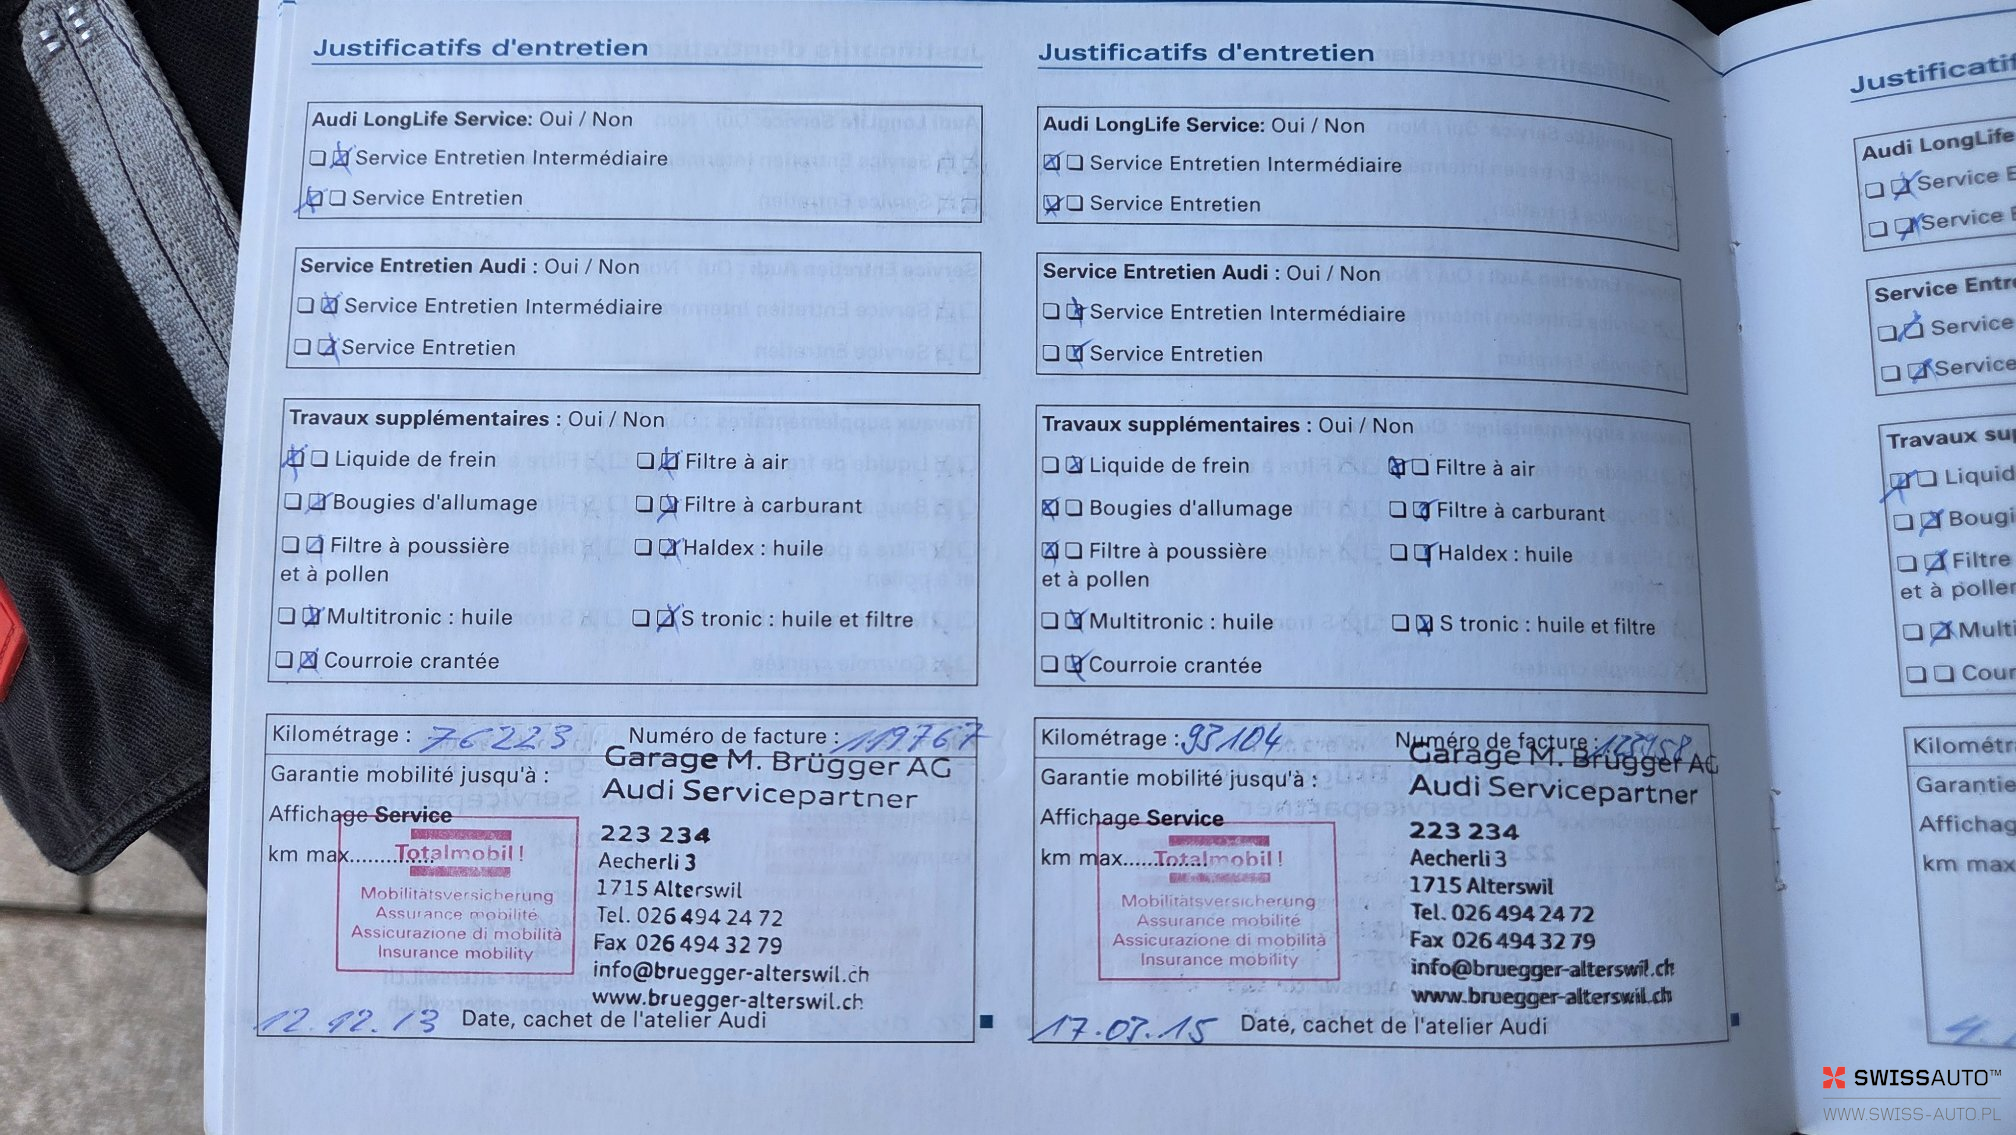 Justificatifs d'entretien
Audi LongLife Service: Oui / Non
Service Entretien Intermédiaire
Service Entretien
Service Entretien Audi : Oui / Non
Service Entretien Intermédiaire
Service Entretien
Travaux supplémentaires : Oui / Non
Liquide de frein Filtre à air
Bougies d'allumage Filtre à carburant
Filtre à poussière Haldex : huile
et à pollen
Multitronic : huile S tronic : huile et filtre
Courroie crantée
Kilométrage : 76223 Numéro de facture : 119767
Garage M. Brügger AG
Garantie mobilité jusqu'à :
Audi Servicepartner
Affichage Service
223 234
km max..............
Totalmobil !
Aecherli 3
Mobilitätsversicherung
1715 Alterswil
Assurance mobilité
Tel. 026 494 24 72
Assicurazione di mobilità
Fax 026 494 32 79
Insurance mobility
info@bruegger-alterswil.ch
www.bruegger-alterswil.ch
12.12.13 Date, cachet de l'atelier Audi
Justificatifs d'entretien
Audi LongLife Service: Oui / Non
Service Entretien Intermédiaire
Service Entretien
Service Entretien Audi : Oui / Non
Service Entretien Intermédiaire
Service Entretien
Travaux supplémentaires : Oui / Non
Liquide de frein Filtre à air
Bougies d'allumage Filtre à carburant
Filtre à poussière Haldex : huile
et à pollen
Multitronic : huile S tronic : huile et filtre
Courroie crantée
Kilométrage : 93104 Numéro de facture :
Garage M. Brügger AG
Garantie mobilité jusqu'à :
Audi Servicepartner
Affichage Service
223 234
km max..............
Totalmobil !
Aecherli 3
Mobilitätsversicherung
1715 Alterswil
Assurance mobilité
Tel. 026 494 24 72
Assicurazione di mobilità
Fax 026 494 32 79
Insurance mobility
info@bruegger-alterswil.ch
www.bruegger-alterswil.ch
17.03.15 Date, cachet de l'atelier Audi
Justificatif
Audi LongLife
Service E
Service
Service Entre
Service
Service
Travaux sup
Liquid
Bougi
Filtre
et à poller
Multi
Cour
Kilométr
Garantie
Affichag
km max
SWISSAUTO™
WWW.SWISS-AUTO.PL